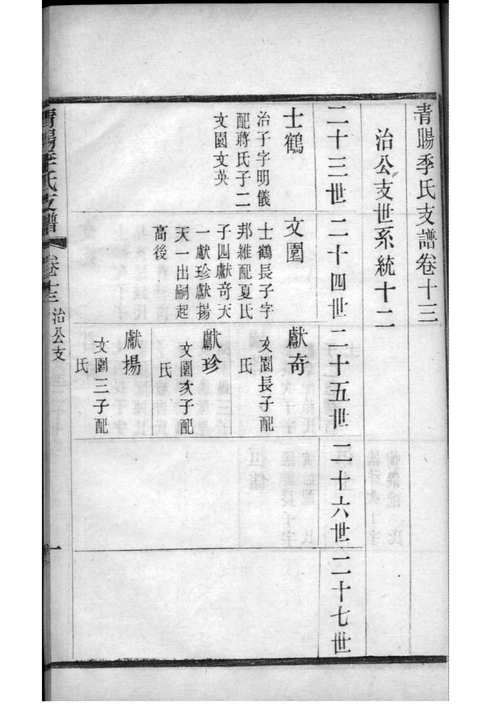 青陽李氏支譜卷十三
治公支世系統十二
二十三世
二十四世
二十五世
二十六世
二十七世
士鶴
治子字明儀
配蔣氏子二
文園文英
文園
士鶴長子字
邦維配夏氏
子四獻奇天
一獻珍獻揚
天一出嗣起
高後
獻奇
文園長子配
氏
獻珍
文園次子配
氏
獻揚
文園三子配
氏
青陽李氏支譜
卷十三
治公支
一